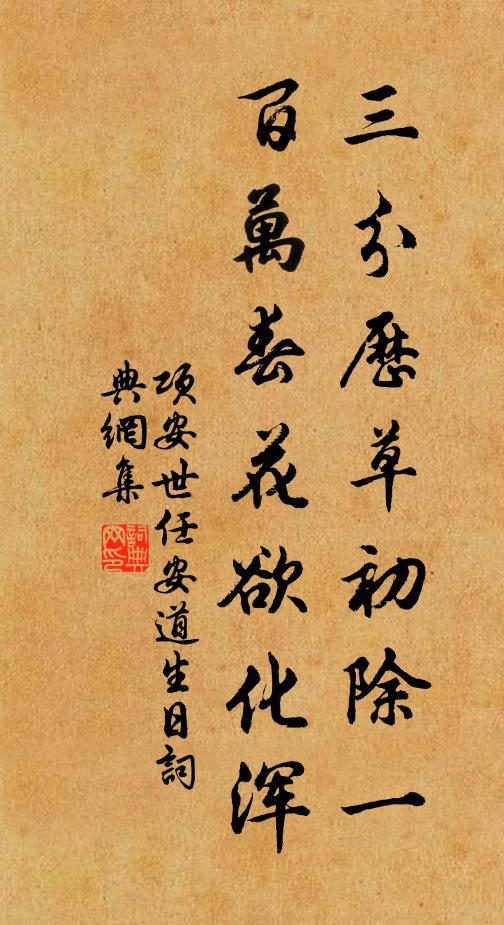 三分歷草初除一
百萬春花欲化渾
項安世任安道生日詞
典網集
詞典
网印